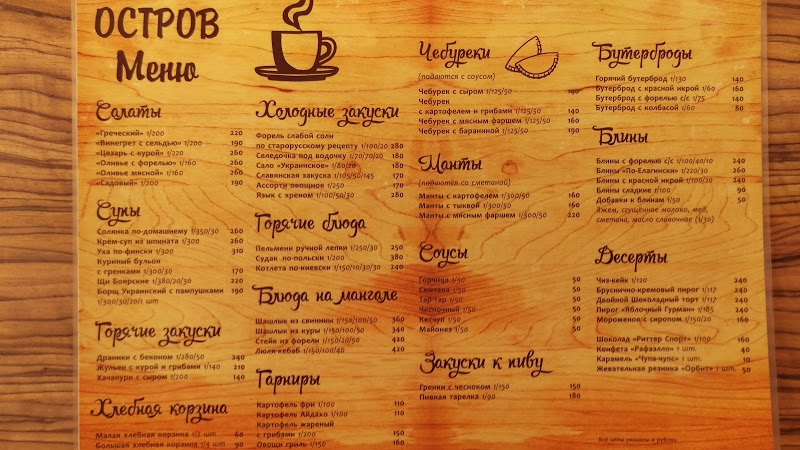 ОСТРОВ
Меню
Салаты
«Греческий» 1/200 220
«Винегрет с сельдью» 1/200 190
«Цезарь с курой» 1/220 260
«Оливье с форелью» 1/160 260
«Оливье мясной» 1/160 260
«Садовый» 1/200 190
Супы
Солянка по-домашнему 1/350/30 260
Крем-суп из шпината 1/300 260
Уха по-фински 1/300 310
Куриный бульон
с гренками 1/300/30 170
Щи Боярские 1/380/20/30 220
Борщ Украинский с пампушками 190
1/300/30/20/1 шт
Горячие закуски
Драники с беконом 1/280/50 240
Жульен с курой и грибами 1/140 210
Хачапури с сыром 1/200 140
Хлебная корзина
Малая хлебная корзина 1/2 шт 60
Большая хлебная корзина 1/4 шт 90
Холодные закуски
Форель слабой соли
по старорусскому рецепту 1/100/20 280
Селедочка под водочку 1/70/70/20 180
Сало «Украинское» 1/80/20 180
Славянская закуска 1/105/50/145 170
Ассорти овощное 1/250 170
Язык с хреном 1/100/50/30 280
Горячие блюда
Пельмени ручной лепки 1/250/30 250
Судак по-польски 1/200 380
Котлета по-киевски 1/150/10/30/30 240
Блюда на мангале
Шашлык из свинины 1/150/100/50 360
Шашлык из куры 1/150/100/50 340
Стейк из форели 1/150/20/50 420
Люля-кебаб 1/150/100/40 420
Гарниры
Картофель фри 1/100 110
Картофель Айдахо 1/100 110
Картофель жареный
с грибами 1/200 150
Овощи гриль 1/150 160
Чебуреки
(подаются с соусом)
Чебурек с сыром 1/125/50 140
Чебурек
с картофелем и грибами 1/125/50 140
Чебурек с мясным фаршем 1/125/50 160
Чебурек с бараниной 1/125/50 190
Манты
(подаются со сметаной)
Манты с картофелем 1/300/50 160
Манты с тыквой 1/300/50 160
Манты с мясным фаршем 1/300/50 220
Соусы
Горчица 1/50 50
Сметана 1/50 50
Тар тар 1/50 50
Чесночный 1/50 50
Кетчуп 1/50 50
Майонез 1/50 50
Закуски к пиву
Гренки с чесноком 1/150 150
Пивная тарелка 1/90 180
Бутерброды
Горячий бутерброд 1/130 140
Бутерброд с красной икрой 1/60 160
Бутерброд с форелью с/с 1/75 140
Бутерброд с колбасой 1/60 80
Блины
Блины с форелью с/с 1/100/40/10 240
Блины «По-Елагински» 1/220/30 260
Блины с красной икрой 1/100/20 240
Блины сладкие 1/100 90
Добавки к блинам 1/50 50
джем, сгущённое молоко, мед,
сметана, масло сливочное (1/30)
Десерты
Чиз-кейк 1/120 240
Бруснично-кремовый пирог 1/117 240
Двойной Шоколадный торт 1/117 240
Пирог «Яблочный Гурман» 1/185 240
Мороженое с сиропом 1/150/20 160
Шоколад «Риттер Спорт» 1/100 160
Конфета «Рафаэлло» 1 шт. 40
Карамель «Чупа-чупс» 1 шт. 40
Жевательная резинка «Орбит» 1 шт. 50
Все цены указаны в рублях.